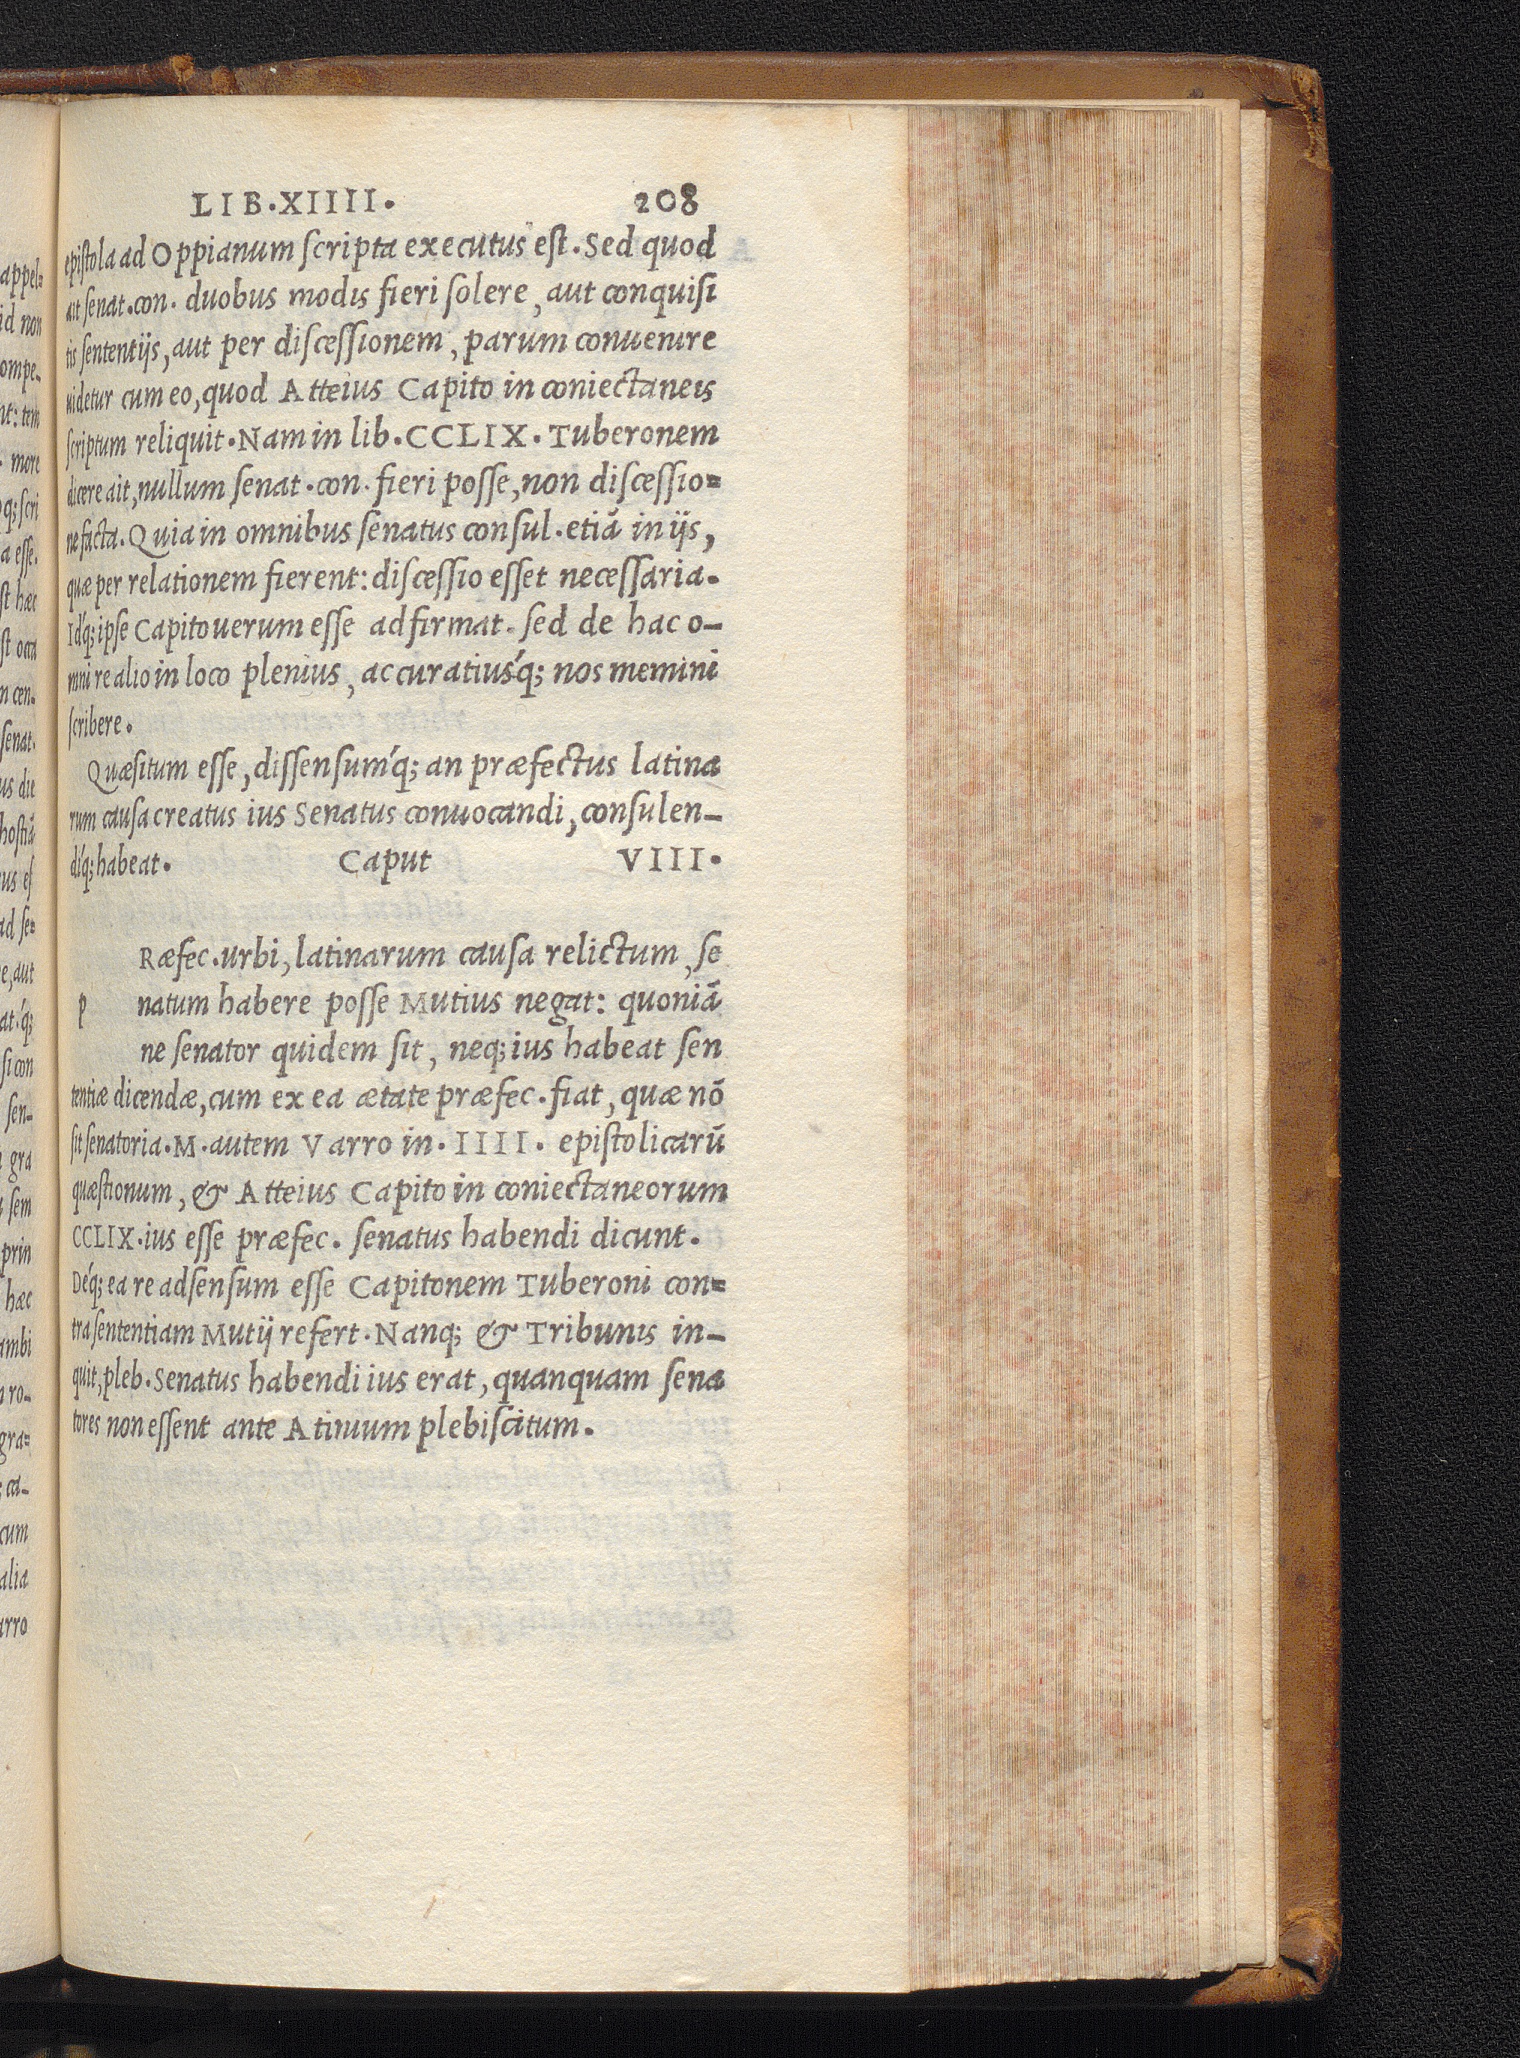 LIB.XIIII. 208
epistola ad Oppianum scripta executus est. Sed quod
ait senat.con. duobus modis fieri solere, aut conquisi
tis sententijs, aut per discessionem, parum conuenire
uidetur cum eo, quod Atteius Capito in coniectaneis
scriptum reliquit. Nam in lib. CCLIX. Tuberonem
dicere ait, nullum senat.con. fieri posse, non discessio=
ne facta. Quia in omnibus senatus consul. etiã in ijs,
quæ per relationem fierent: discessio esset necessaria.
Idq́; ipse Capito uerum esse adfirmat. sed de hac o-
mni re alio in loco plenius, accuratiusq́; nos memini
scribere.
Quæsitum esse, dissensumq́; an præfectus latina
rum causa creatus ius Senatus conuocandi, consulen-
diq́; habeat. Caput VIII.
Ræfec. urbi, latinarum causa relictum, se
p natum habere posse Mutius negat: quoniã
ne senator quidem sit, neq; ius habeat sen
tentiæ dicendæ, cum ex ea ætate præfec. fiat, quæ nõ
sit senatoria. M. autem Varro in. IIII. epistolicarũ
quæstionum, & Atteius Capito in coniectaneorum
CCLIX. ius esse præfec. senatus habendi dicunt.
Deq́; ea re adsensum esse Capitonem Tuberoni con=
tra sententiam Mutij refert. Nanq; & Tribunis in-
quit, pleb. Senatus habendi ius erat, quanquam sena
tores non essent ante Atinium plebiscitum.